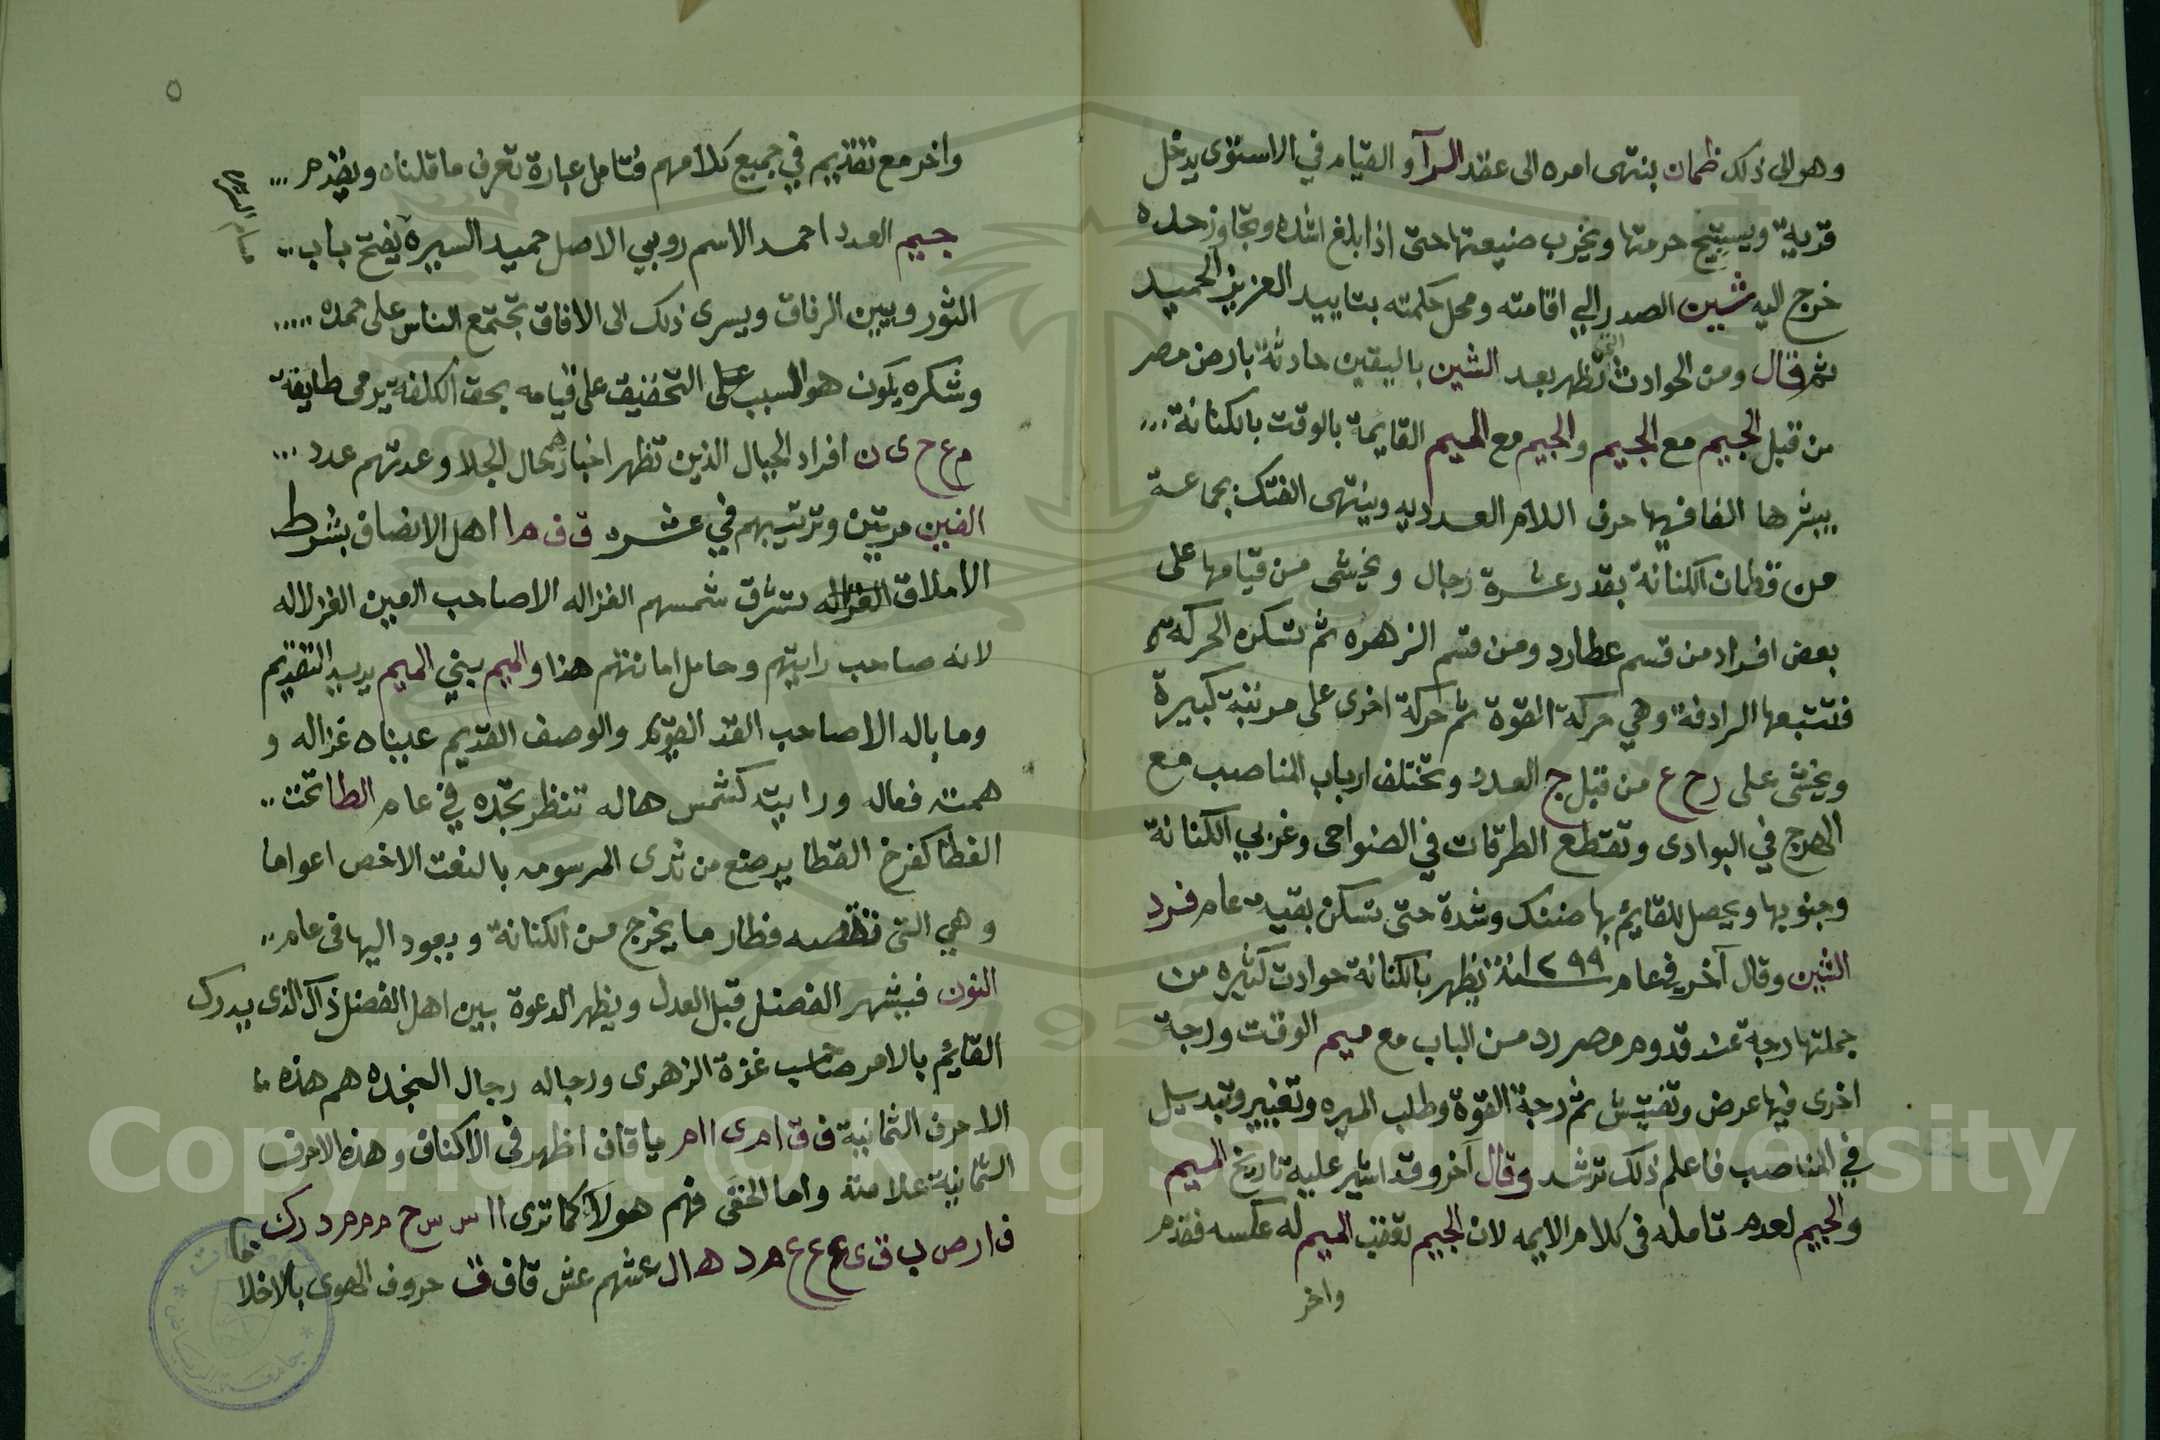 وهو الى ذلك ظمان ينتهى امره الى عقد الرآ و القيام في الاستوى يدخل
قرية ويستبيح حرمتها ويخرب ضيعتها حتى اذا بلغ اشده وتجاوز حده
خرج اليه شين الصدر الي اقامته ومحل حكمته بتاييد العزيز الحميد
ثم قال ومن الحوادث التي تظهر بعد الشين باليقين حادثة بارض مصر
من قبل الجيم مع الجيم والجيم مع الميم القايمة بالوقت بالكنانة...
يبشرها الفا فيها حرف اللام العدديه وينتهى الفتك بجماعة
من قطان الكنانة بقدر عشرة رجال ويخشى من قيامها على
بعض افراد من قسم عطارد ومن قسم الزهره ثم تسكن الحركة
فتتبعها الرادفة وهي حركة القوة ثم حركة اخرى على مرتبة كبيرة
ويخشى على رح ع من قبل ج العدد وتختلف ارباب المناصب مع
الهرج في البوادى وتقطع الطرقات في الضواحى وغربي الكنانة
وجنوبها ويحصل للقايم بها ضنك وشدة حتى تسكن بقية عام فرد
الشين وقال آخر في عام ١٢٩٩ سنة يظهر بالكنانة حوادث كثيره من
جملتها رجة عند قدوم مصر رد من الباب مع ميم الوقت ورجة
اخرى فيها عرض وتفتيش ثم رجة القوة وطلب الميره وتغيير وتبديل
في المناصب فاعلم ذلك ترشد وقال آخر وقد اشير عليه تاريخ الميم
والجيم لعده تامله فى كلام الايمه لان الجيم تعقب الميم له عكسه فقدم
واخر
٥
واخر مع تقديم في جميع كلامهم فتامل عبارة تعرف ما قلناه ويقدم ...
جيم العدد احمد الاسم روبي الاصل حميد السيرة يفتح باب ..
الثور ويبين الرفاق ويسرى ذلك الى الافاق تجتمع الناس على حمده .....
وشكره يكون هو السبب على التخفيف على قيامه بحق الكلفة يرمى طايفة
م ع ح ى ن افراد الجبال الذين تظهر اخبارهم حال الجلا وعدتهم عدد ...
الفين مرتين وترتيبهم في عشره ق ف م ا اهل الانصاف بشرط
الاملاق الغزاله تشرق شمسهم الغزاله الا صاحب العين الغزلاله
لانه صاحب رايتهم وحامل امانتهم هذا والميم يبني الميم يريد التقديم
وما باله الا صاحب القد القويم والوصف القديم عيناه غزاله و
همته فعاله ورايته كشمس هاله تنظر تجده في عام الطا تحت ..
الغطا كفرخ القطا يرضع من ثدى المرسومه بالنعت الاخص اعواما
وهي التى فطار ما يخرج من الكنانة ويعود اليها فى عام ..
النون فيشهر الفضل قبل العدل ويظهر الدعوة بين اهل الفضل ذاك الذى يدرك
القايم بالامر صاحب غزة الزهرى ورجاله رجال النجده هم هذه
الاحرف الثمانية ف ق ا م ى ا ا م يا قاف اظهر فى الاكناف وهذه الاحرف
الثمانية علامته واما الخفى فهم هولآ كما ترى ا ا س س ح م م م د ر ك
ف ا ر ص ب ق ى ع ع ع م د ه ا ل عشهم عش قاف ق حروف الهوى بالاخلا
Copyright © King Saud University
1957